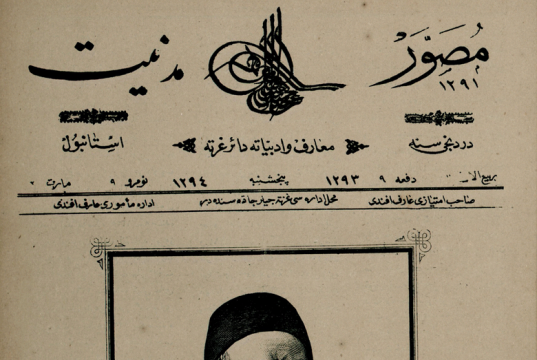 مُصَوَّرْ مدنیت
١٢٩١
دردنجی سنه استانبول
معارف و ادبیاته دائر غزته
ربیع الاخر دفعه ٩ ١٢٩٣ پنجشنبه ١٢٩٤ نومرو ٩ مارت
صاحب امتیازی عارف افندی محل اداره سی غزته جیلر جاده سنده در اداره مأموری عارف افندی